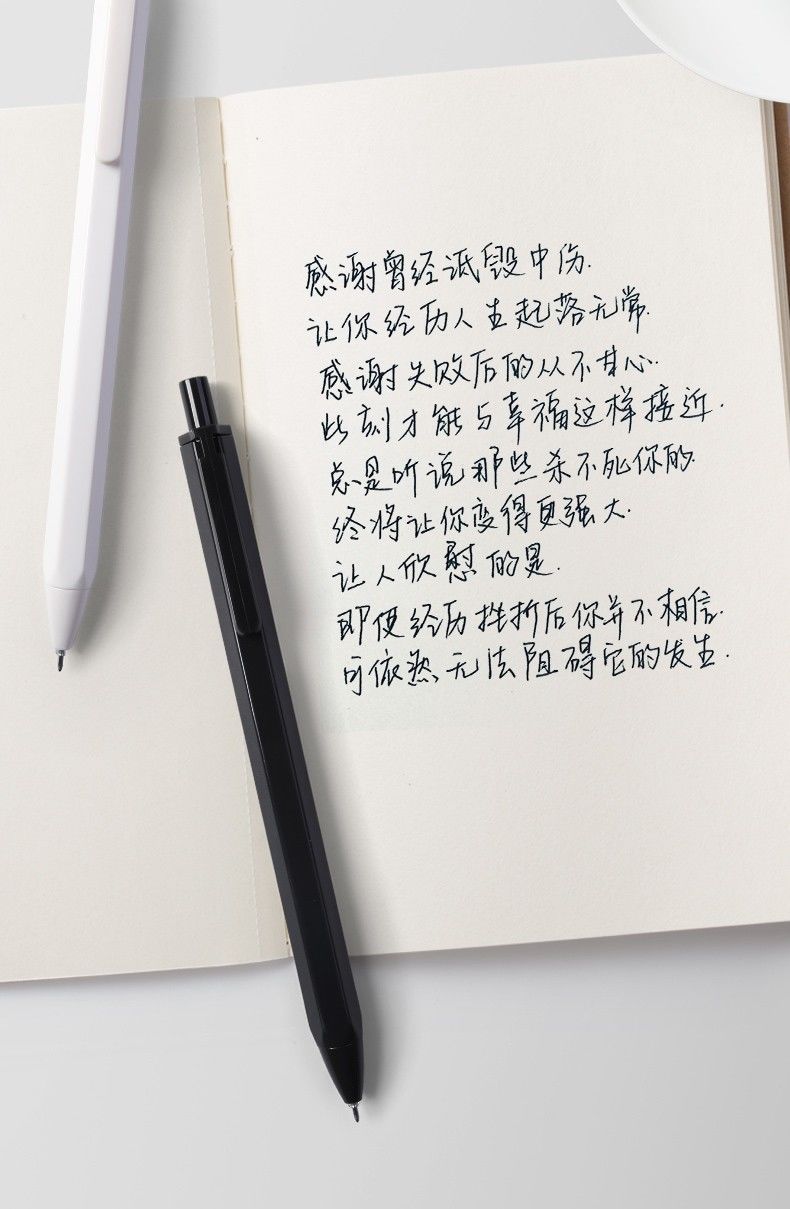 感谢曾经诋毁中伤.
让你经历人生起落无常.
感谢失败后的从不甘心.
此刻才能与幸福这样接近.
总是听说那些杀不死你的.
终将让你变得更强大.
让人欣慰的是.
即便经历挫折后你并不相信.
可依然无法阻碍它的发生.